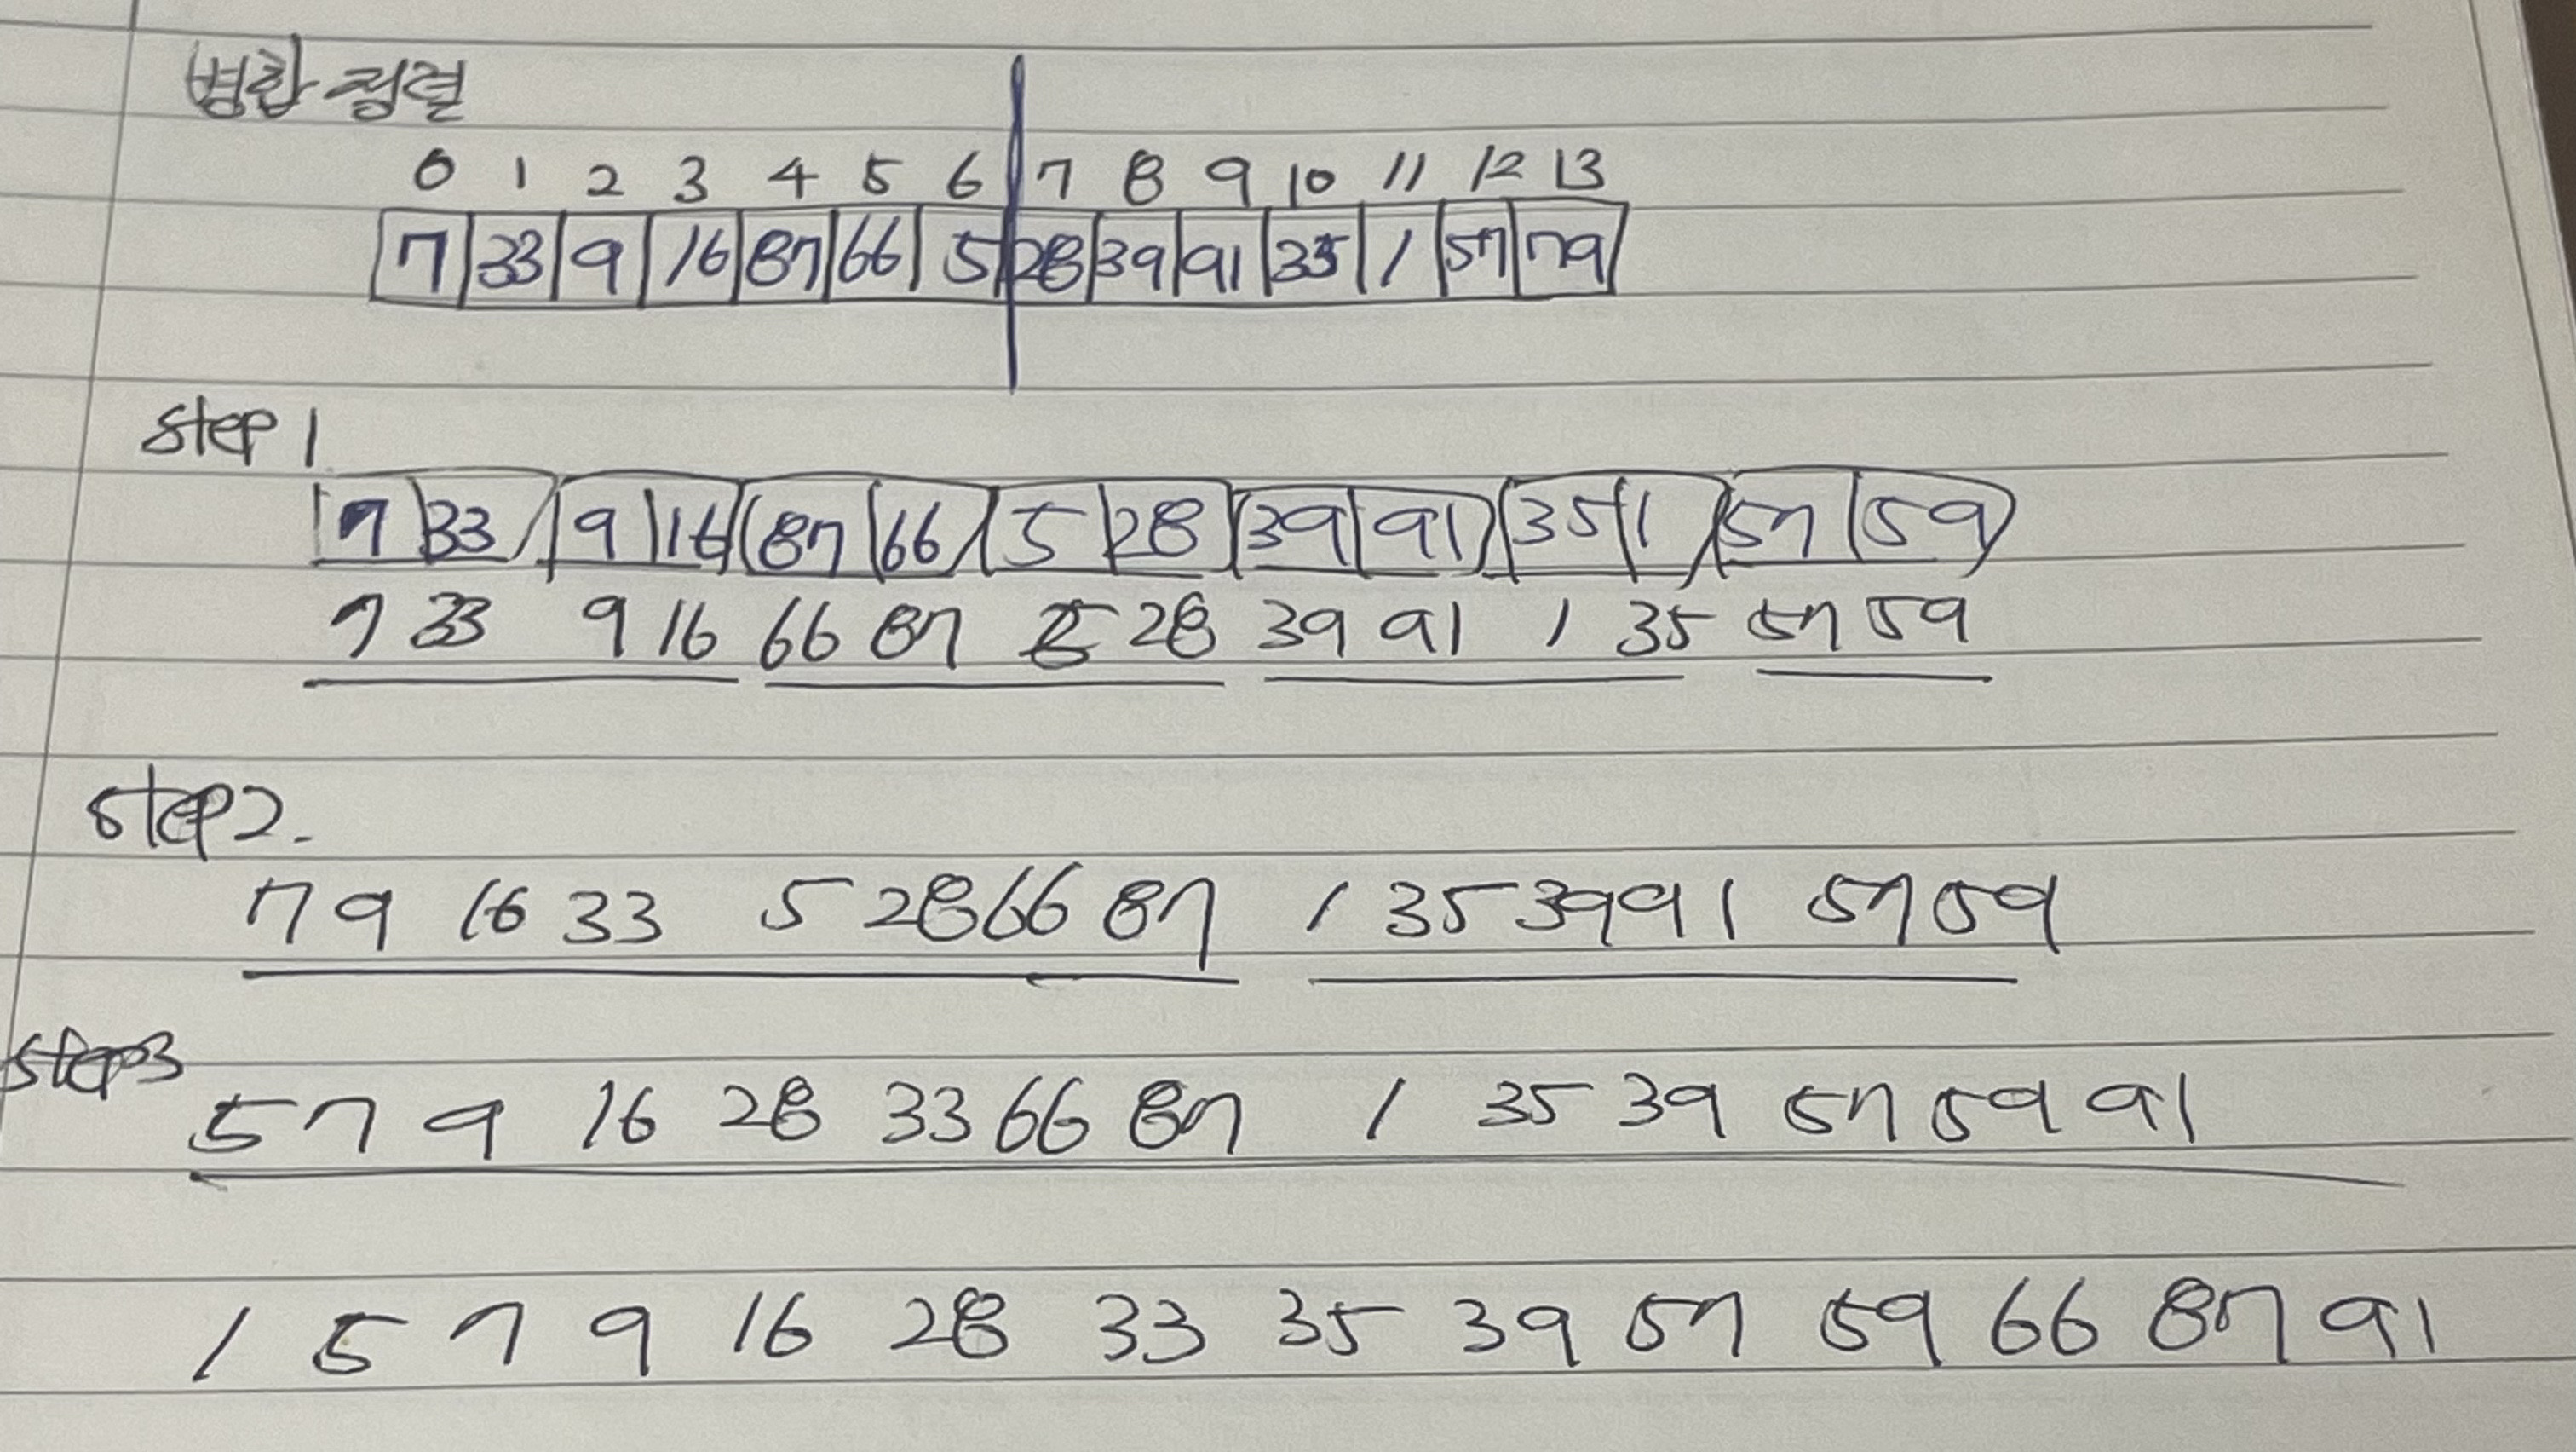 병합 정렬
0 1 2 3 4 5 6 7 8 9 10 11 12 13
7 33 9 16 87 66 5 28 39 91 35 1 57 79
step 1
7 33 9 16 87 66 5 28 39 91 35 1 57 59
7 33 9 16 66 87 5 28 39 91 1 35 57 59
step 2.
7 9 16 33 5 28 66 87 1 35 39 91 57 59
step 3
5 7 9 16 28 33 66 87 1 35 39 57 59 91
1 5 7 9 16 28 33 35 39 57 59 66 87 91